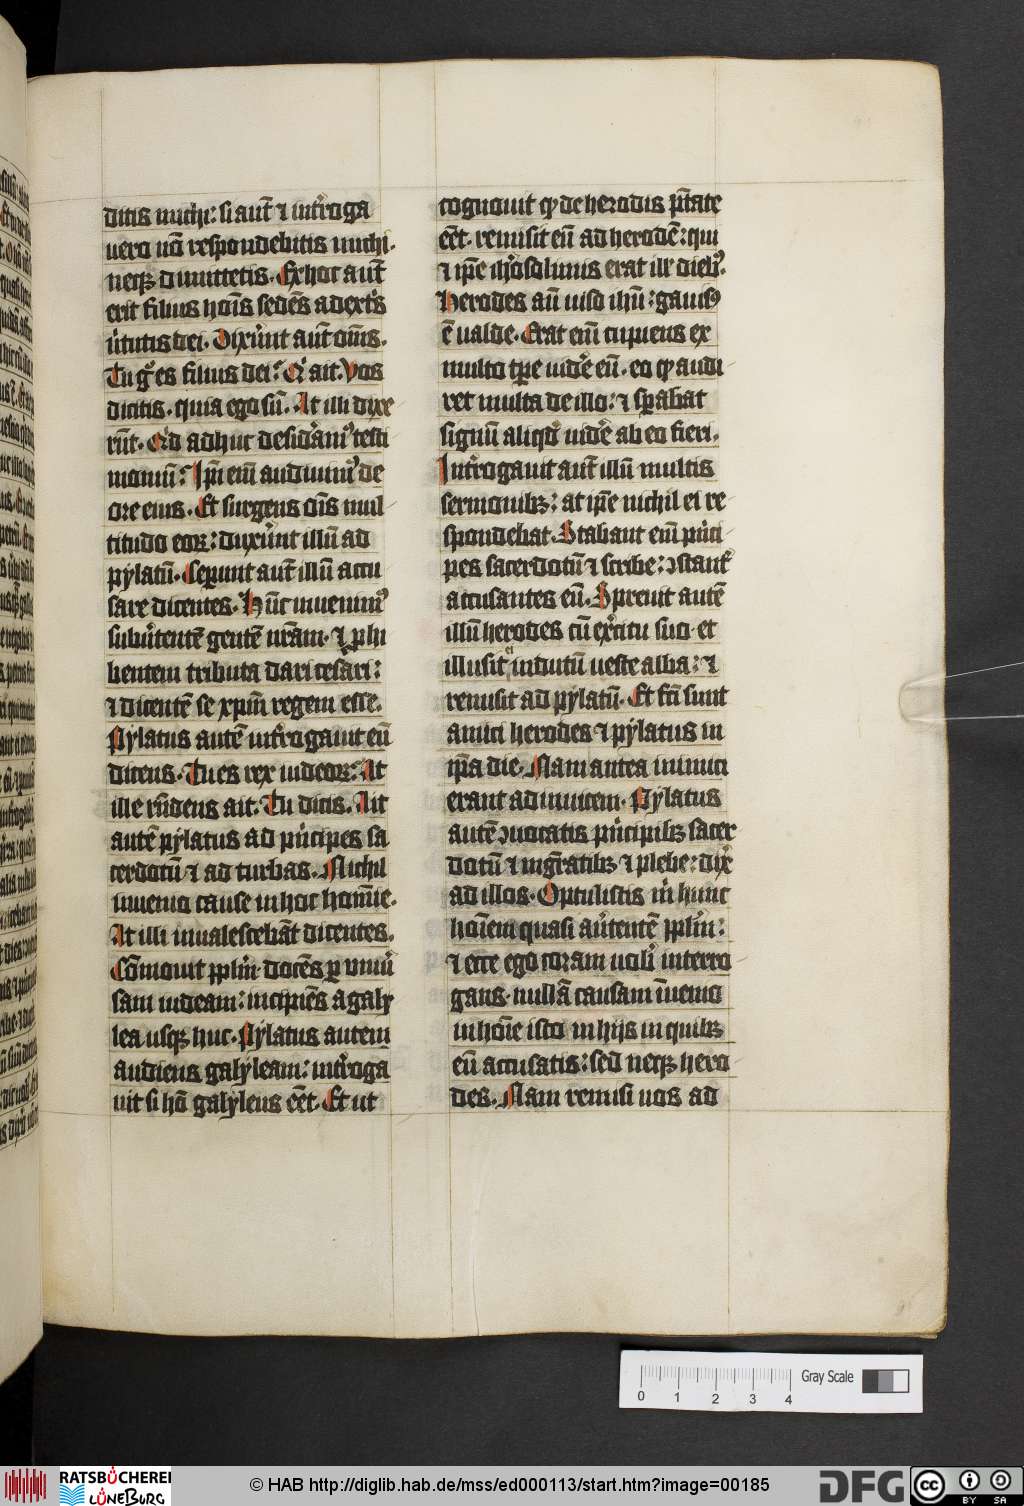 ditis michi: si aut̄ ⁊ int̉roga
uero nō respondebitis michi.
neqꝫ dimittetis. Ex hoc aut̄
erit filius hoīs sedēs a dext̉s
ủtutis dei. Dixẻnt aut̄ om̄s.
Tu gͦ es filius dei? Qͥ ait. Vos
dicitis. quia ego sū. At illi dixe
rūt. Qͥd adhuc desideramꝰ testi
moniū? Ip̄i eni̅ audiuimꝰ de
ore eius. Et surgens oīs mul
titudo eoꝝ: duxẻnt illū ad
pylatū. Ceperunt aut̄ illū accu
sare dicentes. Hūc inuenimꝰ
subủtentē gentē nr̄am. ⁊ ꝓhi
bentem tributa dari cesari:
⁊ dicentē se xp̄m regem esse.
Pylatus autē int̉rogauit eū
dicens. Tu es rex iudeoꝝ? At
ille rn̄dens ait. Tu dicis. Ait
autē pylatus ad pͥncipes sa
cerdotū ⁊ ad turbas. Nichil
inuenio cause in hoc hom̄ie.
At illi inualescebāt dicentes.
Cōmouit pp̄lm̄ docēs ꝑ vniủ
sam iudeam: incipiēs a galy
lea usqꝫ huc. Pylatus autem
audiens galyleam: int̉roga
uit si hō galyleus eēt. Et ut
cognouit ꝙ de herodis p̄tate
eēt. remisit eū ad herodē: qui
⁊ ip̄e ih̉osolimis erat ill̄ diebꝰ.
Herodes aū uiso ihū: gauisꝰ
ē ualde. Erat enī cupiens ex
multo tp̄e uid̉e eū. eo ꝙ audi
ret multa de illo: ⁊ sꝑabat
signū aliqd̄ uid̉e ab eo fieri.
Int̉rogauit aut̄ illū multis
sermonibꝫ: at ip̄e nichil ei re
spondebat. Stabant enī pͥnci
pes sacerdotū ⁊ scribe: ꝯstant̉
accusantes eū. Spreuit autē
illū herodes cū ex̉citu suo et
illusit indutū ueste alba: ⁊
remisit ad pylatū. Et fc̄i sunt
amici herodes ⁊ pylatus in
ip̄a die. Nam antea inimici
erant adinuicem. Pylatus
autē ꝯuocatis pͥncipibꝫ sacer
dotū ⁊ mgr̄atibꝫ ⁊ plebe: dix̄
ad illos. Optulistis m̉ hunc
hoīem quasi aủtentē pp̄lm̄:
⁊ ecce ego coram uobͥ interro
gans. nullā causam īuenio
in hoīe isto in hijs in quibꝫ
eū accusatis: sed neqꝫ hero
des. Nam remisi uos ad
0 1 2 3 4 Gray Scale
RATSBÜCHEREI LÜNEBURG
© HAB http://diglib.hab.de/mss/ed000113/start.htm?image=00185
DFG
cc BY SA